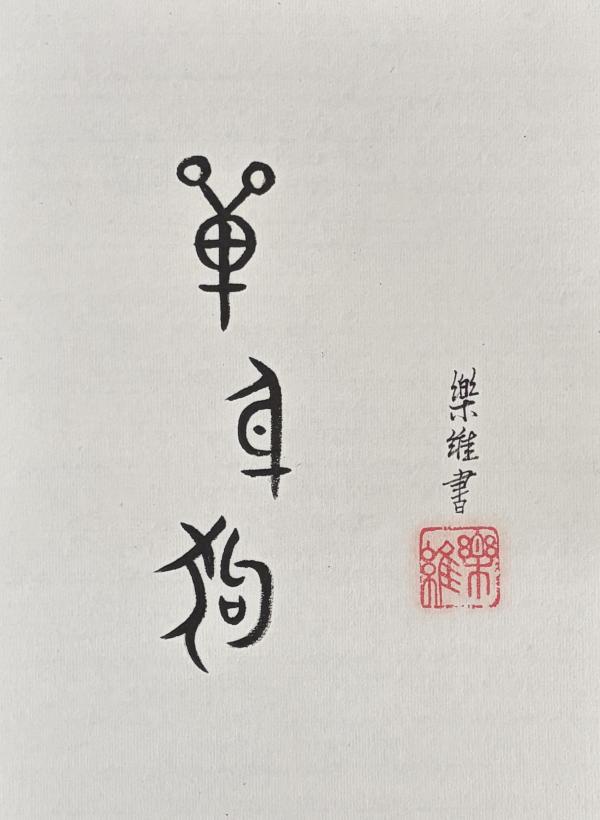 單身狗
樂維書
樂維